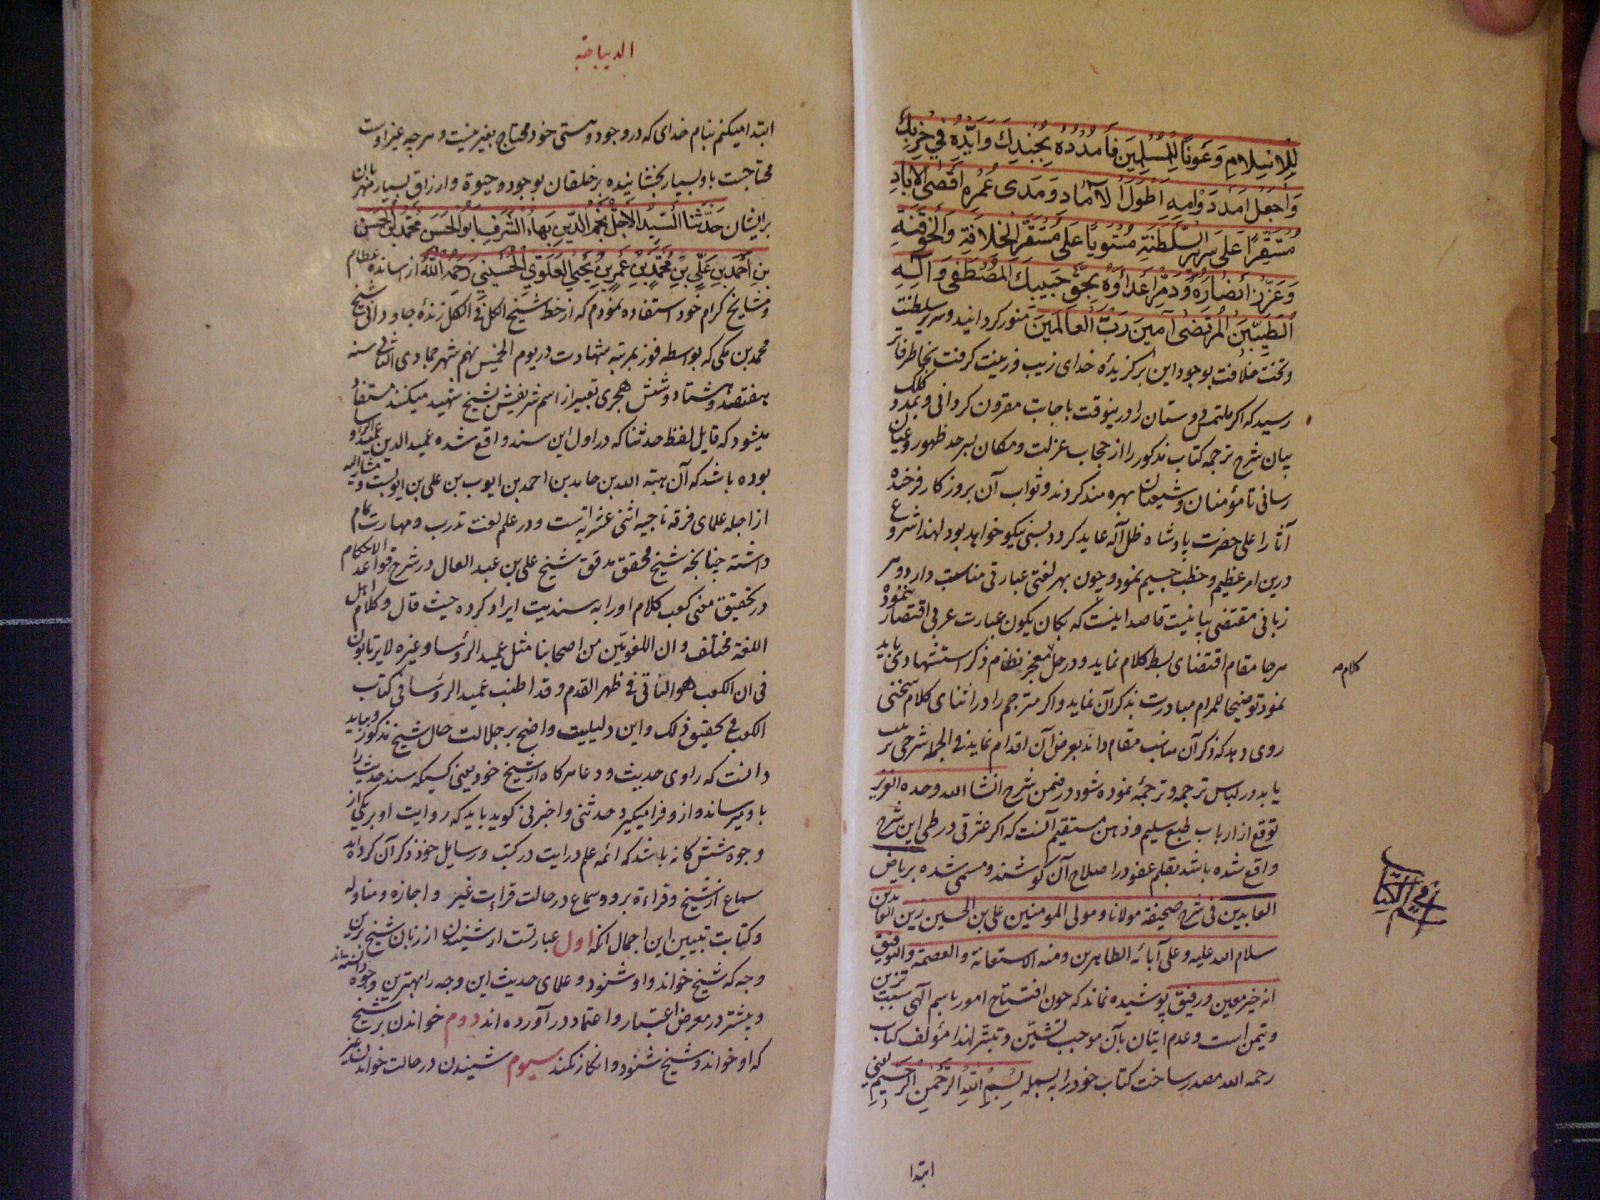 لِلْاِسْلامِ وَعَوْنًا لِلْمُسْلِمينَ فَاَمْدُدْهُ بِجُنْدِكَ وَاَيِّدْهُ في حِزْبِكَ
وَاجْعَلْ اَمَدَ دَوامِهِ اَطْوَلَ الآمادِ وَمَدى عُمُرِهِ اَقْصَى الاٰبادِ
مُسْتَقِرًّا عَلى سَريرِ السَّلْطَنَةِ مُسْتَوِيًا عَلى مُسْتَقَرِّ الْخِلافَةِ وَالْحَقّيَّةِ
وَعَزِّزْ اَنْصارَهُ وَدَمِّرْ اَعْداءَهُ بِحَقِّ حَبيبِكَ الْمُصْطَفى وَآلِهِ
الطَّيِّبينَ الْمُرْتَضى آمينَ رَبَّ الْعالَمينَ منور کردانید و سریر سلطنت
وتخت خلافت بوجود این برکزیدهٔ خدای زیب و زینت کرفت بخاطر فاتر
رسید که اکر ملتمس دوستان را درینوقت باجابت مقرون کردانی و بمدد کلک
بیان شرح ترجمه کتاب مذکور را از حجاب عزلت و مکان بسرحد ظهور و عیان
رسانی تا مؤمنان و شیعیان بهره مند کردند و ثواب آن بروزکار فرخنده
آثار اعلی حضرت پادشاه ظل آله عاید کردد بسی نیکو خواهد بود لهذا شروع
درین امر عظیم و خطب جسیم نمود و چون بهر لغتی عبارتی مناسبت دارد و هر
زبانی مقتضی بیانیست قاصد اینست که بکان یکون عبارت عربی اقتصار ننموده
هرجا مقام اقتضای بسط کلام نماید و در حل معجز نظام ذکر استشهادی باید
کلام م
نمود توضیحا للمرام مبادرت بذکر آن نماید و اکر مترجم را در اثنای کلام سخنی
روی دهد که ذکر آن مناسب مقام داند بعرض آن اقدام نماید فی الجمله شرحی
یابد در لباس ترجمه و ترجمهٔ نموده شود در ضمن شرح انشا الله وحده العزیز
توقع از ارباب طبع سلیم و ذهن مستقیم آنست که اکر عثرتی در طی این شرح
واقع شده باشد بقلم عفو در اصلاح آن کوشند و مسمی شده بریاض
العابدین فی شرح صحیفة مولانا و مولی المومنین علی بن الحسین زین العابدین
سلام الله علیه و علی آبائه الطاهرین و منه الاستعانة و العصمة والتوفیق
انه خیر معین و رفیق پوشیده نماند که چون افتتاح امور باسم آلهی سبب تزیین
و تیمن است و عدم اتیان بآن موجب تشیّن و تبتّر لهذا مؤلف کتاب
رحمه الله مصدر ساخت کتاب خود را به بسمله بِسْمِ اللهِ الرَّحْمٰنِ الرَّحيمِ یعنی
ابتدا
الدیباجة
ابتدا میکنم بنام خدای که در وجود و هستی خود محتاج بغیر نیست و هر چه غیر اوست
محتاجست باو بسیار بخشاینده بر خلقان بوجود و حیوة و ارزاق بسیار مهربان
بر ایشان حَدَّثَنَا السَّيِّدُ الْاَجَلُّ نَجْمُ الدّينِ بَهاءُ الشَّرَفِ اَبُو الْحَسَنِ مُحَمَّدُ بْنُ الْحَسَنِ
بْنِ اَحْمَدَ بْنِ عَلِيِّ بْنِ مُحَمَّدِ بْنِ عُمَرَ بْنِ يَحْيَى الْعَلَوِيُّ الْحُسَيْنِيُّ رَحِمَهُ اللهُ از اساتذه عظام
و مشایخ کرام خود استفاده نمودم که از خط شیخ الکل فی الکل زندهٔ جاودانی شیخ
محمد بن مکی که بواسطه فوز بمرتبه شهادت در یوم الخمیس نهم شهر جمادی الثانی سنه
هفتصد و هشتاد و شش هجری تعبیر از اسم شریفش بشیخ شهید میکنند مستفاد
میشود که قایل لفظ حدثنا که در اول این سند واقع شده عمید الدین عمید الرؤساء
بوده باشد که آن هبته الله بن حامد بن احمد بن ایوب بن علی بن ایوبست و مشار الیه
از اجله علمای فرقه ناجیه اثنی عشریه است و در علم لغت تدرب و مهارت تمام
داشته چنانچه شیخ محقق مدقق شیخ علی بن عبد العال در شرح قواعد الاحکام
در تحقیق معنی کعب کلام او را به سندیت ایراد کرده حیث قال و کلام اهل
اللغة مختلف و ان اللغویّین من اصحابنا مثل عمید الرؤسا و غیره لا یرتابون
فی ان الکعب هو الناتی فی ظهر القدم و قد اطنب عمید الرؤسا فی کتاب
الکعب فی تحقیق ذلک و این دلیلیست واضح بر جلالت حال شیخ مذکور و باید
دانست که راوی حدیث و دعا هرکاه از شیخ خود یعنی کسیکه سند حدیث را
باو میرساند و ازو فرا میکیرد حدثنی و اخبرنی کوید باید که روایت او بر یکی از
وجوه ششکانه باشد که ائمه علم درایت در کتب و رسایل خود ذکر آن کرده اند
سماع از شیخ و قراءة برو و سماع در حالت قراءت غیر و اجازه و مناوله
و کتابت تبیین این اجمال آنکه اول عبارتست از شنیدن از زبان شیخ برین
وجه که شیخ خواند و او شنود و علمای حدیث این وجه را بهترین وجوه دانسته اند
و بیشتر در معرض اعتبار و اعتماد در آورده اند دوم خواندن بر شیخ
که او خواند و شیخ شنود و انکار نکند سیوم شنیدن در حالت خواندن غیر